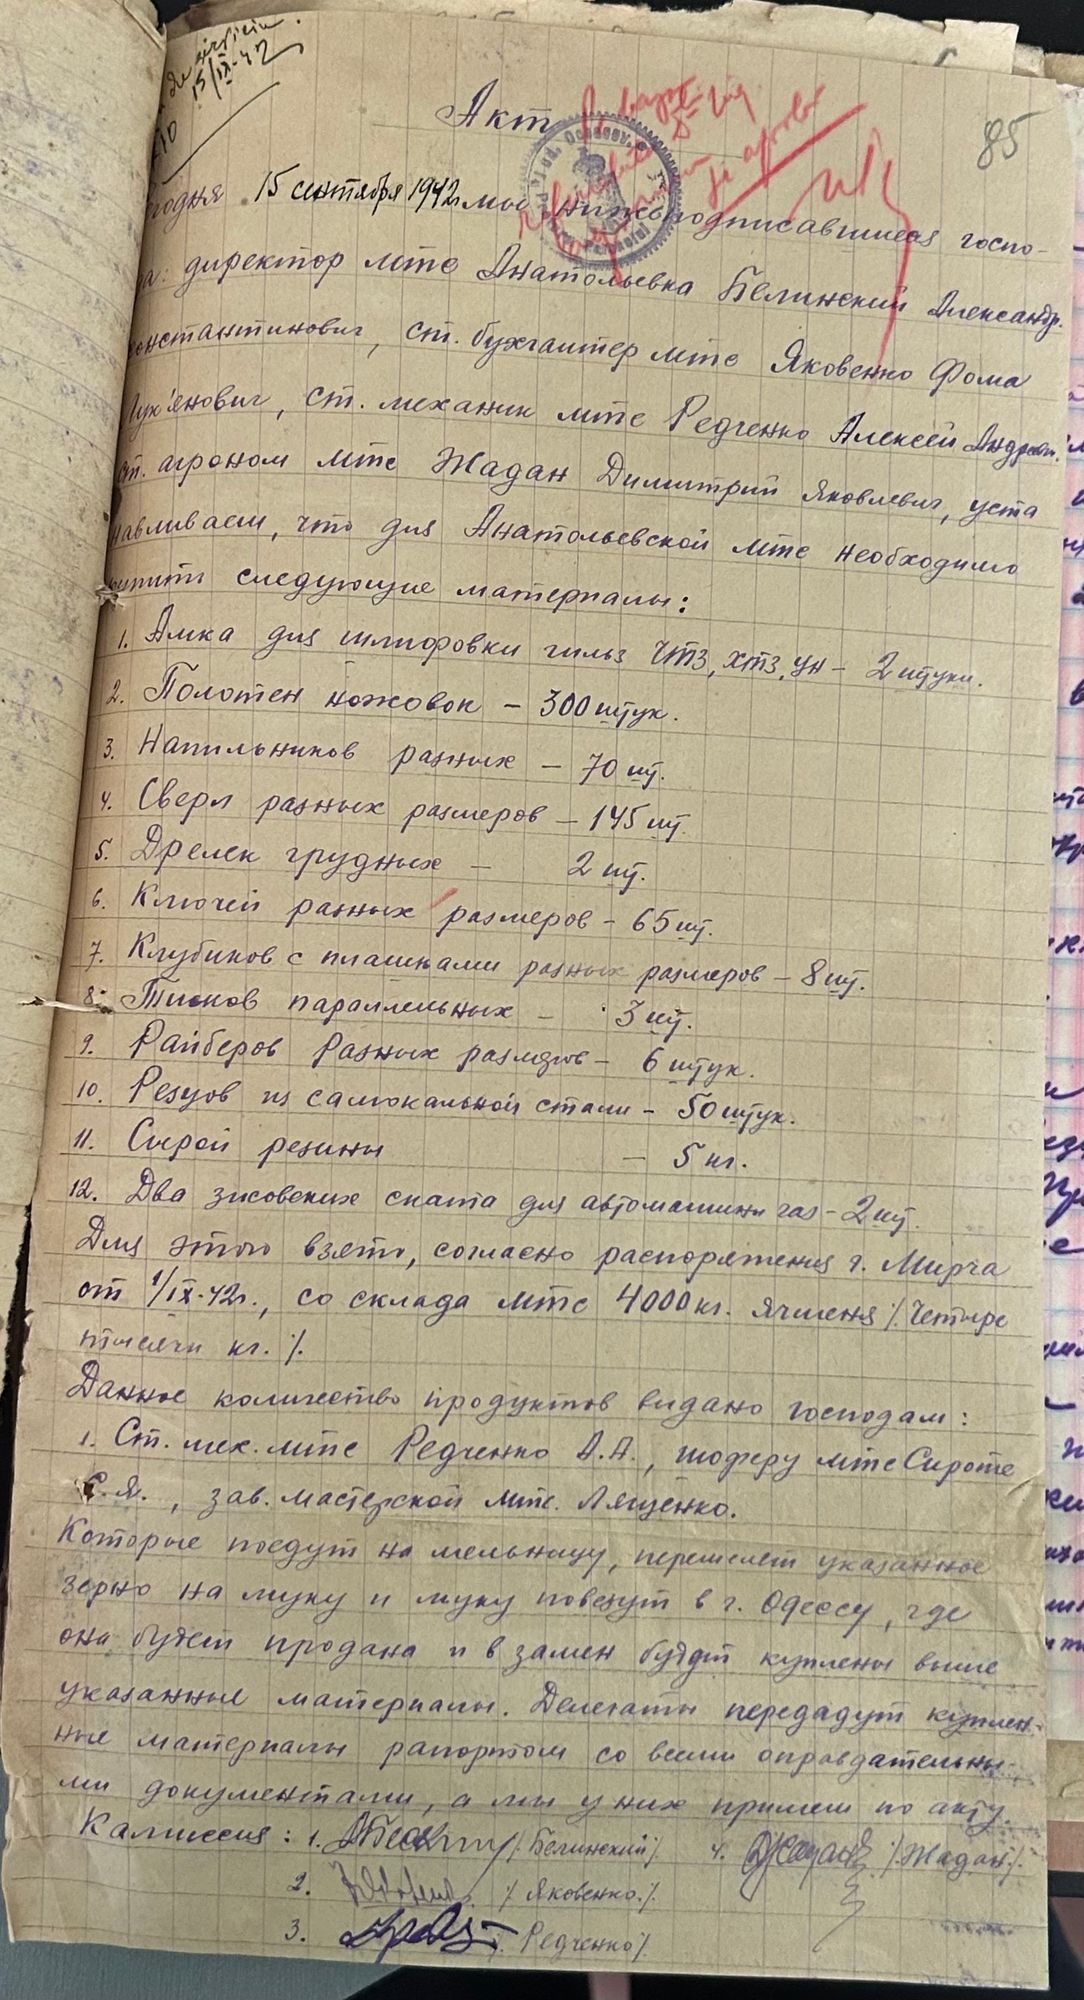 15/IX-42
85
Акт
годня 15 сентября 1942г. мы нижеподписавшиеся госпо-
да: директор мтс Анатольевка Белинский Александр.
константинович, ст. бухгалтер мтс Яковенко Фома
Лук'янович, ст. механик мтс Редченко Алексей Андреев.
ст. агроном мтс Жадан Димитрий Яковлевич, уста
навливаем, что для Анатольевской мтс необходимо
купить следующие материалы:
1. Амка для шлифовки гильз ЧТЗ, ХТЗ, УН – 2 штуки.
2. Полотен ножовок – 300 штук.
3. Напильников разных – 70 шт.
4. Сверл разных размеров – 145 шт.
5. Дрелек грудных – 2 шт.
6. Ключей разных размеров – 65 шт.
7. Клубиков с плашками разных размеров – 8 шт.
8. Тисков параллельных – 3 шт.
9. Райберов разных размеров – 6 штук.
10. Резцов из самокальной стали – 50 штук.
11. Сырой резины – 5 кг.
12. Два зисовских ската для автомашины газ – 2 шт.
Для этого взято, согласно распоряжения г. Мирча
от 1/IX-42г., со склада мтс 4000 кг. ячменя /. Четыре
тысячи кг. /.
Данное количество продуктов видано господам:
1. Ст. мех. мтс Редченко А.А., шоферу мтс Сироте
С.Я., зав. мастерской мтс. Ляценко.
Которые поедут на мельницу, перемелят указанное
зерно на муку и муку повезут в г. Одессу, где
она будет продана и в замен будет куплены выше
указанные материалы. Делегаты передадут куплен-
ные материалы рапортом со всеми оправдательны-
ми документами, а мы у них примем по акту.
Камиссия: 1. /. Белинский /. 4. /. Жадан /.
2. /. Яковенко /.
3. /. Редченко /.